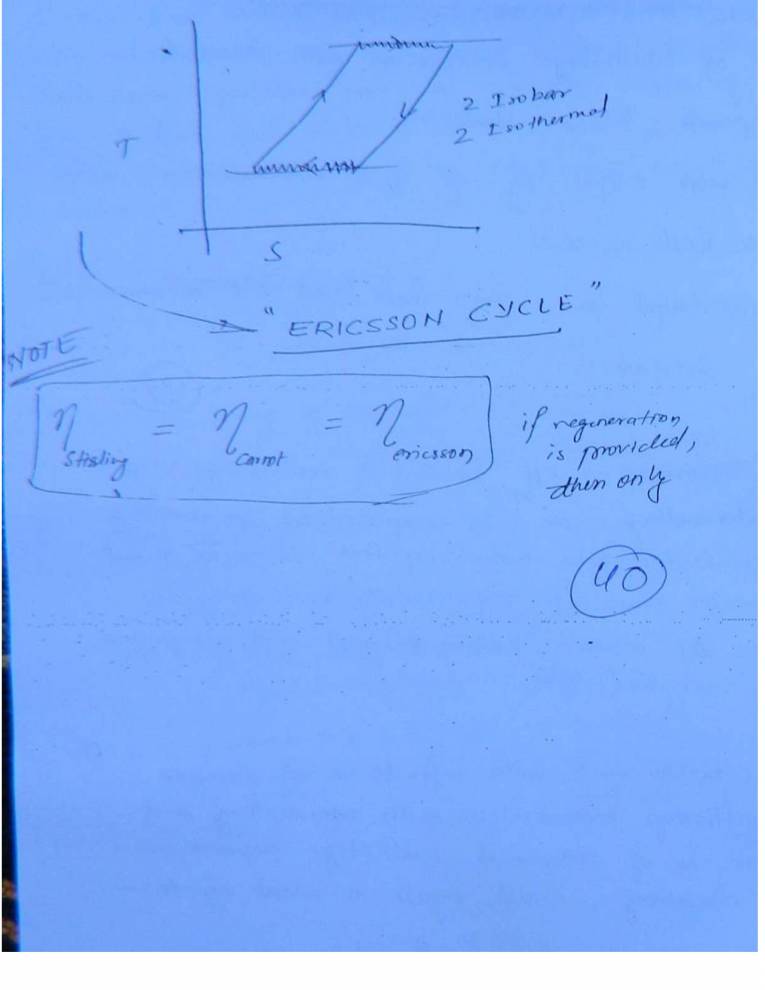 T
2 Isobar
2 Isothermal
S
"ERICSSON CYCLE"
NOTE
η Stirling = η Carnot = η ericsson
if regeneration
is provided,
then only
40